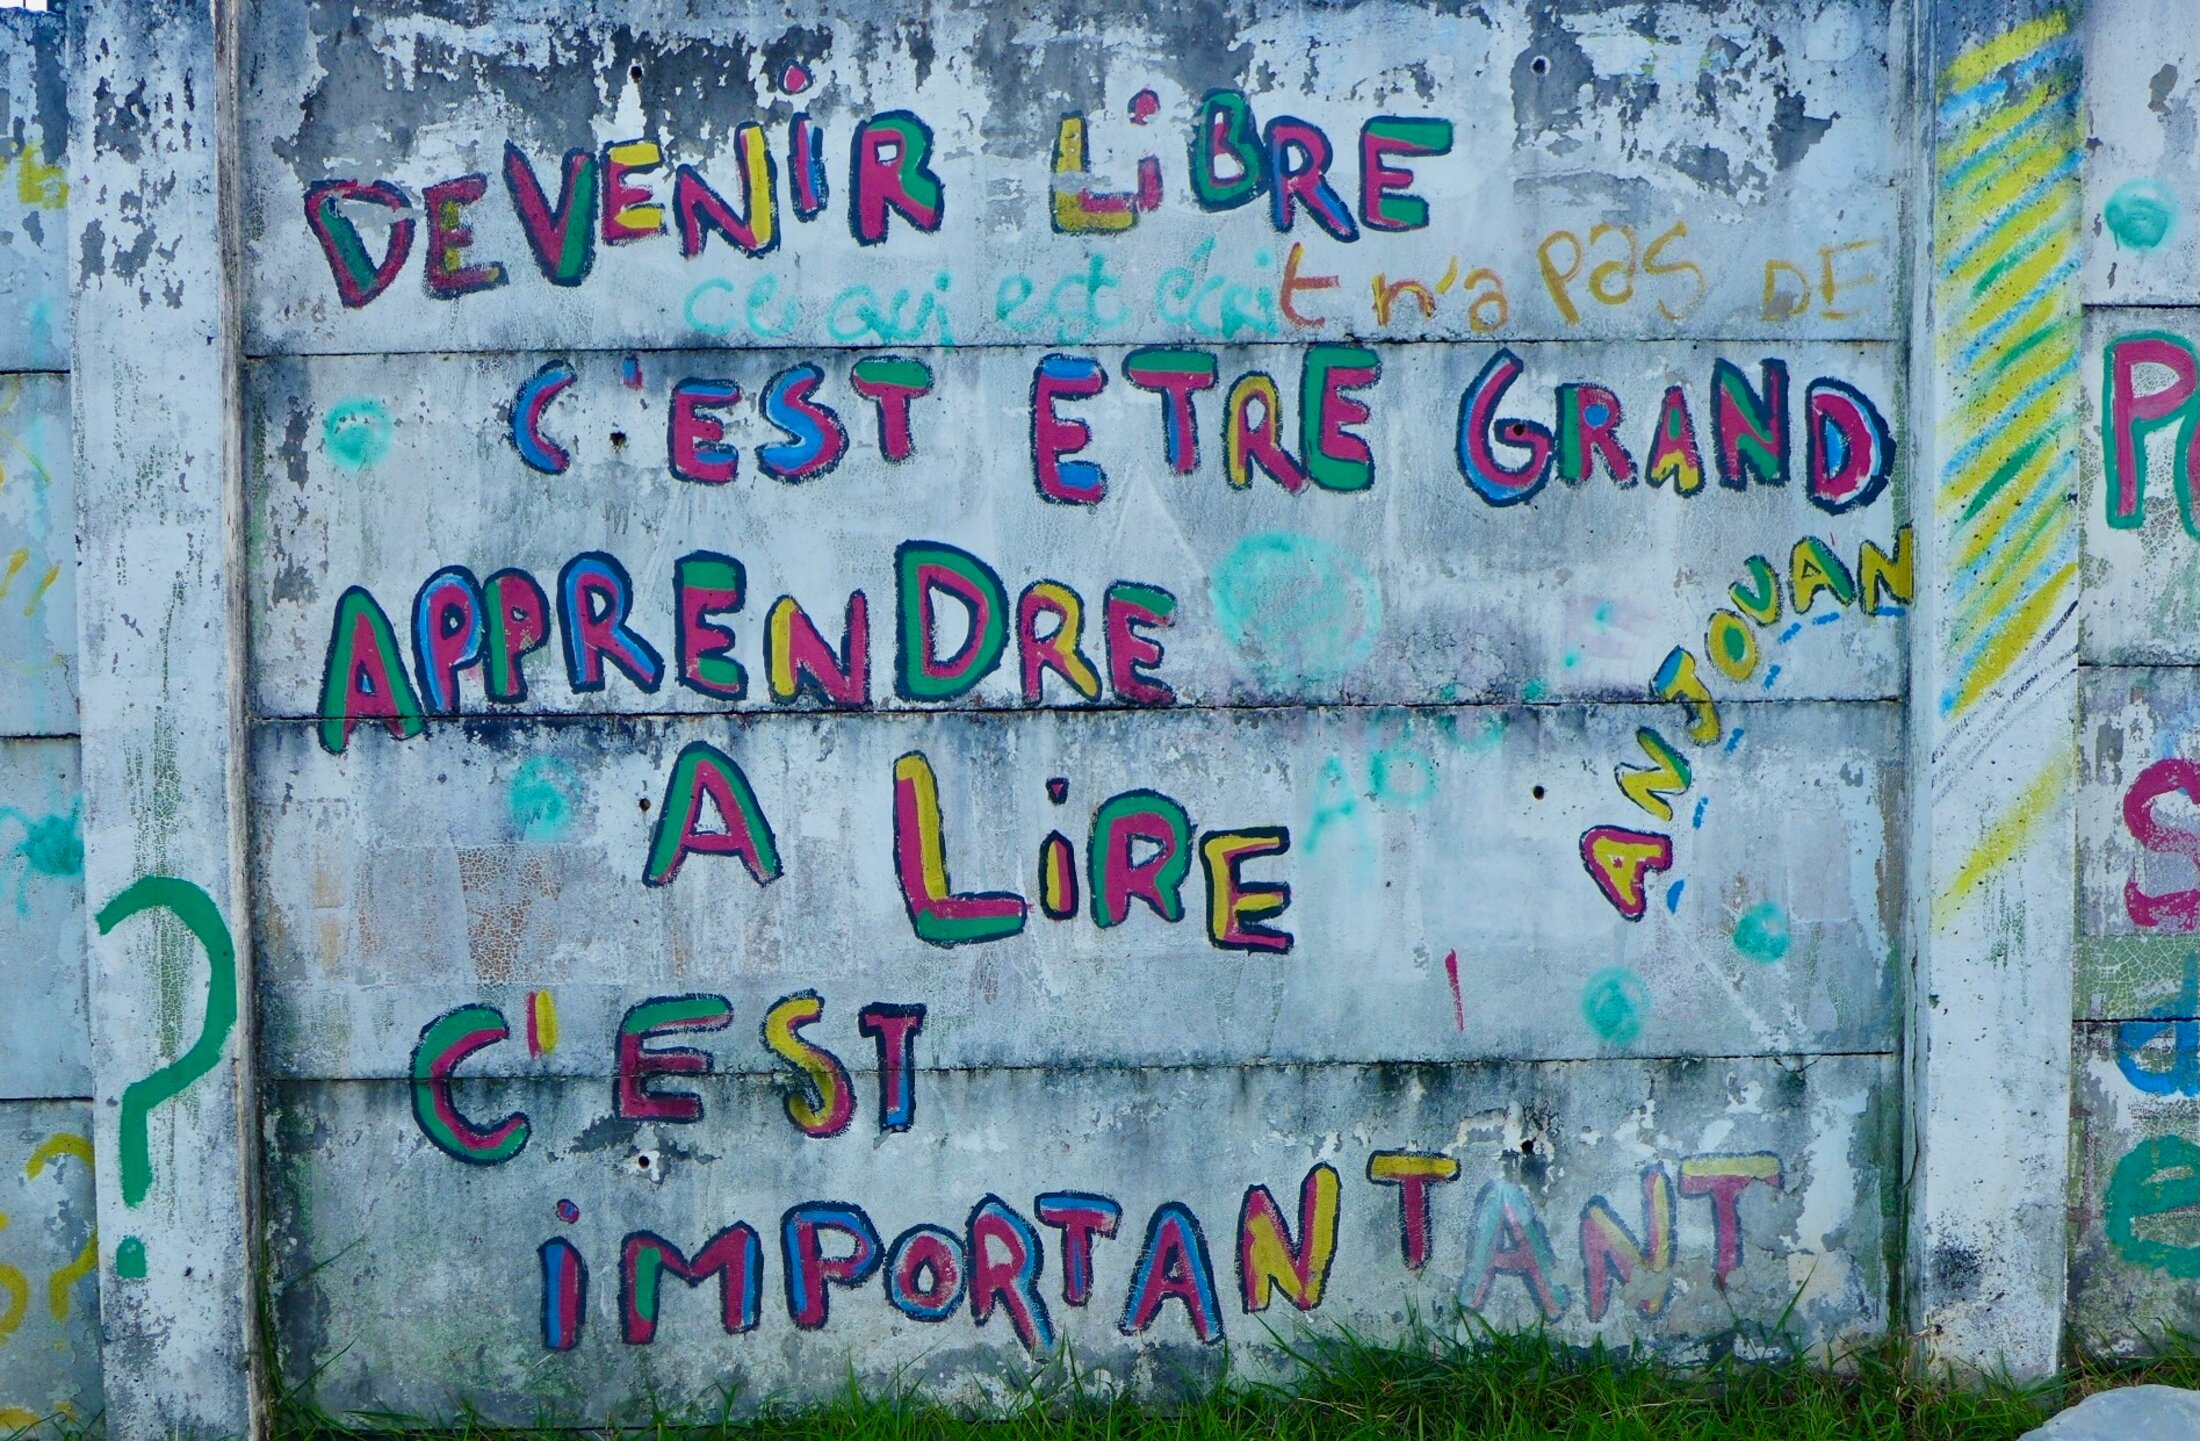 DEVENiR LiBRE
ce qui est écrit n'a pas DE
C'EST ETRE GRAND
APPRENDRE
ANJOUAN
A LiRE
C'EST
iMPORTANT ANT
?